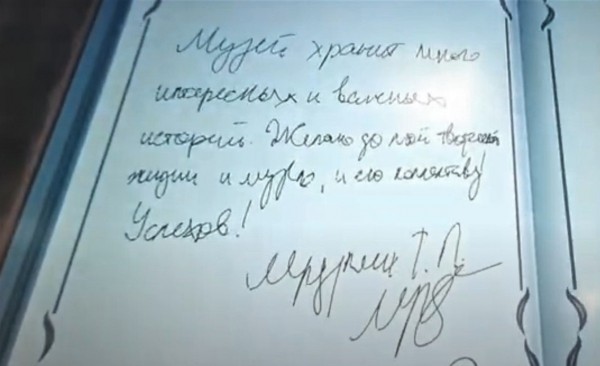 Музей хранит много
интересных и важных
историй. Желаю до творческой
жизни и музею, и его коллективу
Успехов!
Т. П.